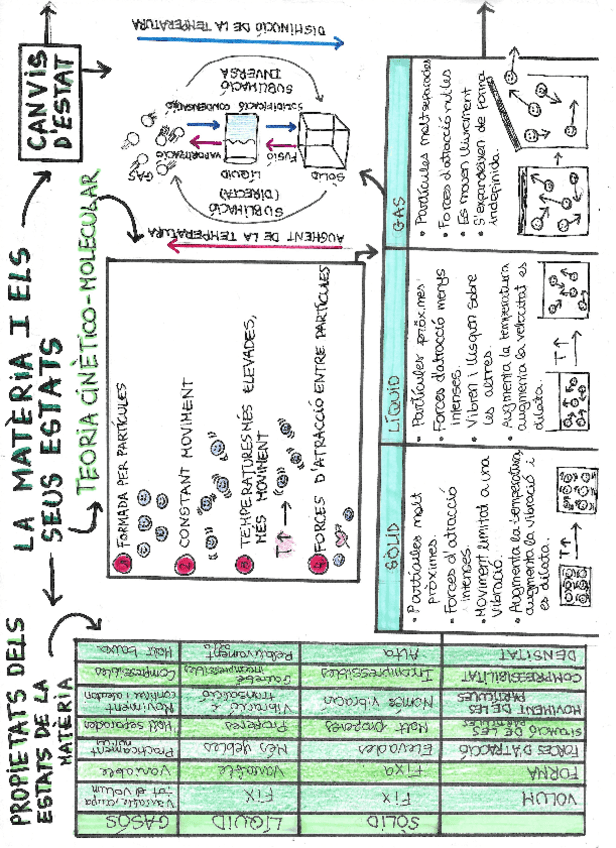 LA MATÈRIA I ELS
SEUS ESTATS
TEORIA CINÈTICO-MOLECULAR
1 FORMADA PER PARTÍCULES
2 CONSTANT MOVIMENT
3 TEMPERATURES MÉS ELEVADES,
MÉS MOVIMENT
T↑
4 FORCES D'ATRACCIÓ ENTRE PARTÍCULES
CANVIS
D'ESTAT
AUGMENT DE LA TEMPERATURA
DISMINUCIÓ DE LA TEMPERATURA
SUBLIMACIÓ
(DIRECTA)
SUBLIMACIÓ
INVERSA
GAS
VAPORITZACIÓ
CONDENSACIÓ
LÍQUID
FUSIÓ
SOLIDIFICACIÓ
SÒLID
SÒLID
• Partícules molt
pròximes.
• Forces d'atracció
intenses.
• Moviment limitat a una
vibració.
• Augmenta la temperatura,
augmenta la vibració i
es dilata.
T↑
LÍQUID
• Partícules pròximes
• Forces d'atracció menys
intenses.
• Vibren i llisquen sobre
les altres.
• Augmenta la temperatura
augmenta la velocitat es
dilata.
T↑
GAS
• Partícules molt separades
• Forces d'atracció nul·les
• Es mouen lliurement
• S'expandeixen de forma
indefinida.
PROPIETATS DELS
ESTATS DE LA
MATÈRIA
SÒLID LÍQUID GASÓS
VOLUM Fix Fix Variable, ocupa
tot el volum
FORMA Fixa Variable Variable
FORCES D'ATRACCIÓ Elevades Més febles Pràcticament
nul·les
SITUACIÓ DE LES
PARTÍCULES Molt properes Properes Molt separades
MOVIMENT DE LES
PARTÍCULES Només vibració Vibració i
translació Moviment
continu i aleatori
COMPRESSIBILITAT Incompressibles Gairebé
incompressibles Compressibles
DENSITAT Alta Relativament
alta Molt baixa